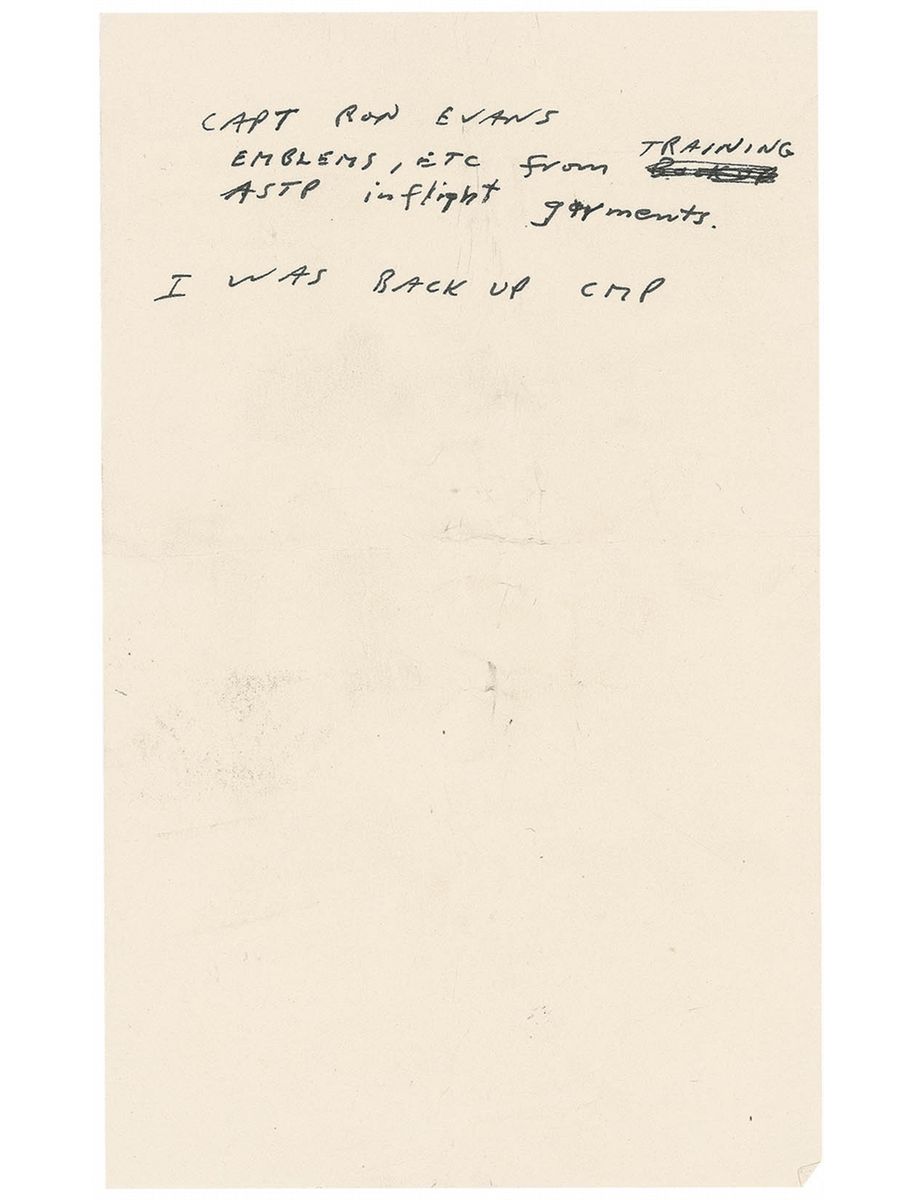 CAPT RON EVANS
EMBLEMS, ETC from TRAINING
ASTP inflight garments.
I WAS BACK UP CMP